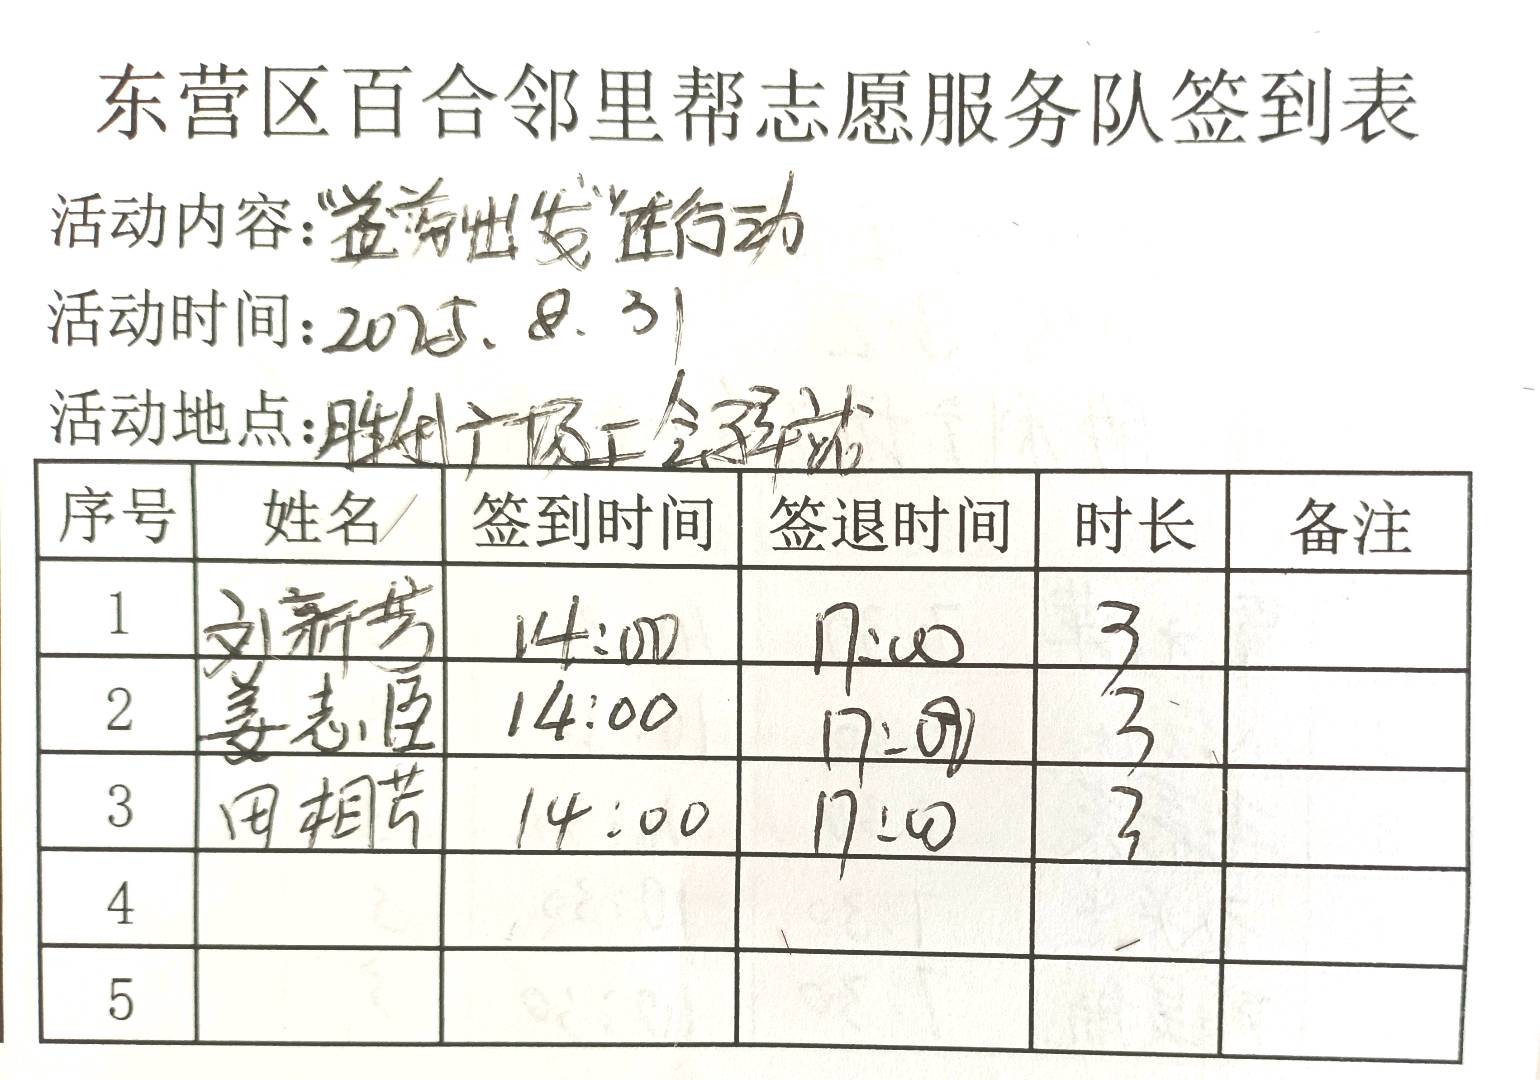 东营区百合邻里帮志愿服务队签到表
活动内容:"益劳出发"在行动
活动时间:2025.8.31
活动地点:胜利广场工会驿站
序号 姓名 签到时间 签退时间 时长 备注
1 刘新芳 14:00 17:00 3
2 姜志臣 14:00 17:00 3
3 田相芹 14:00 17:00 3
4
5